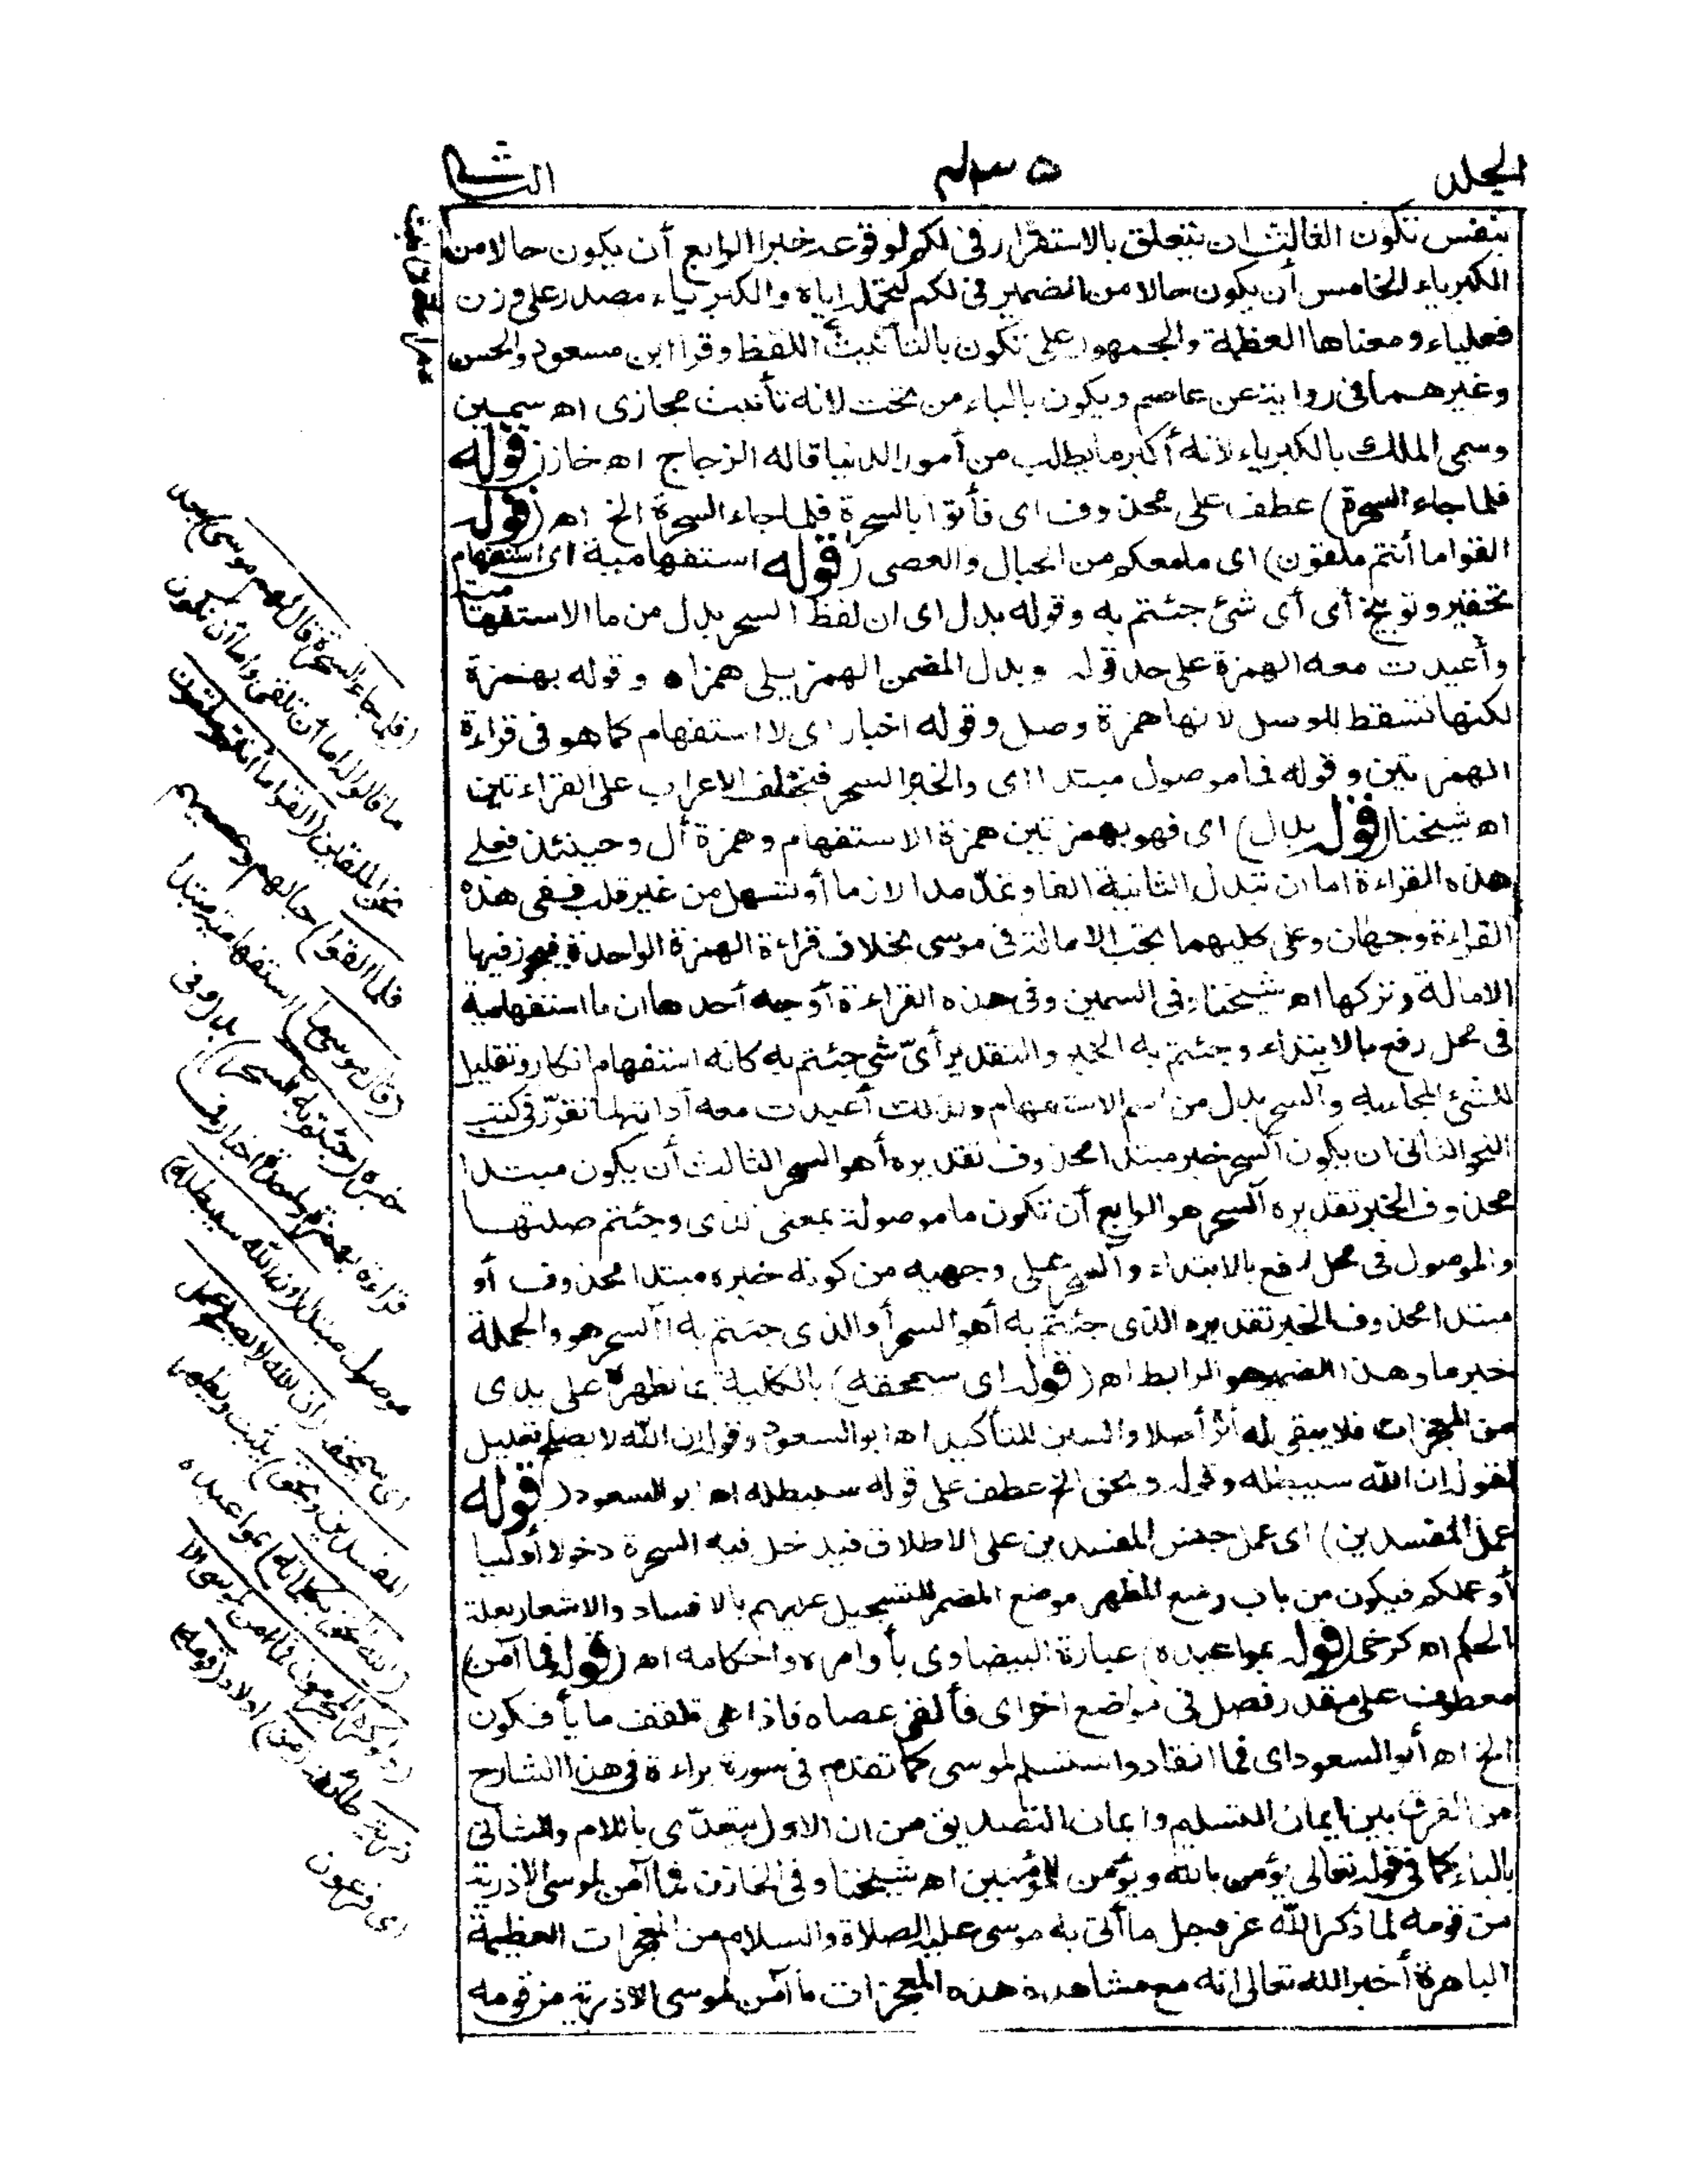 الجلد
٤٣٥
الثانى
بنفس تكون الثالث ان يتعلق بالاستقرار فى لكم لوقوعه خبرا الرابع أن يكون حالا من
الكبرياء الخامس أن يكون حالا من الضمير فى لكم لتحمله اياه والكبرياء مصدر على وزن
فعلياء ومعناها العظمة والجمهور على تكون بالتأنيث اللفظ وقرا ابن مسعود والحسن
وغيرهما فى رواية عن عاصم ويكون بالياء من تحت لانه تأنيث مجازى اه سمين
وسمى الملك بالكبرياء لانه أكبر ما يطلب من أمور الدنيا قاله الزجاج اه خازن (قوله
فلما جاء السحرة) عطف على محذوف اى فأتوا بالسحرة فلما جاء السحرة الخ اه (قوله
القوا ما أنتم ملقون) اى ما معكم من الحبال والعصى (قوله استفهامية اى استفهام
تحقير وتوبيخ أى أى شئ جئتم به وقوله بدل اى ان لفظ السحر بدل من ما الاستفهامية
وأعيدت معه الهمزة على حد قوله وبدل المضمن الهمز يلى همزا ه وقوله بهمزة
لكنها تسقط للوصل لانها همزة وصل وقوله اخبار اى لا استفهام كما هو فى قراءة
الهمزتين وقوله فما موصول مبتدا اى والخبر السحر فيختلف الاعراب على القراءتين
اه شيخنا (قوله بدل) اى فهو بهمزتين همزة الاستفهام وهمزة أل وحينئذ فعلى
هذه القراءة اما ان تبدل الثانية الفا وتمدّ مدا لازما أو تسهل من غير قلب ففى هذه
القراءة وجهان وعلى كليهما تجب الامالة فى موسى بخلاف قراءة الهمزة الواحدة فيجوز فيها
الامالة وتركها اه شيخنا وفى السمين وفى هذه القراءة أوجه أحدها ان ما استفهامية
فى محل رفع بالابتداء وجئتم به الخبر والتقدير أىّ شئ جئتم به كانه استفهام انكار وتقليل
للشئ المجاء به وآلسحر بدل من اسم الاستفهام ولذلك أعيدت معه أداته لما تقرّر فى كتب
النحو الثانى ان يكون آلسحر خبر مبتدا محذوف تقديره أهو السحر الثالث أن يكون مبتدا
محذوف الخبر تقديره آلسحر هو الرابع أن تكون ما موصولة بمعنى الذى وجئتم صلتها
والموصول فى محل رفع بالابتداء وآلسحر على وجهيه من كونه خبره مبتدا محذوف أو
مبتدا محذوف الخبر تقديره الذى جئتم به أهو السحر أو الذى جئتم به آلسحر هو والجملة
خبر ما وهذا الضمير هو الرابط اه (قوله اى سيمحقه) بالكلية بما نظهره على يدى
من المعجزات فلا يبقى له أثر أصلا والسين للتأكيد اه ابو السعود وقوله ان الله لا يصلح تعليل
لقوله ان الله سيبطله وقوله ويحق الخ عطف على قوله سيبطله اه ابو السعود (قوله
عمل المفسدين) اى عمل جنس المفسدين على الاطلاق فيدخل فيه السحرة دخولا أوليا
أو عملكم فيكون من باب وضع المظهر موضع المضمر للتسجيل عليهم بالافساد والاشعار بعلة
الحكم اه كرخى (قوله بمواعيده) عبارة البيضاوى بأوامره واحكامه اه (قوله فما آمن)
معطوف على مقدر فصل فى مواضع اخر اى فألقى عصاه فاذا هى تلقف ما يأفكون
الخ اه أبو السعود اى فما انقاد واستسلم لموسى كما تقدم فى سورة براءة فى هذا الشارح
من الفرق بين ايمان التسليم وايمان التصديق من ان الاول يتعدّى باللام والثانى
بالباء كما فى قوله تعالى يؤمن بالله ويؤمن للمؤمنين اه شيخنا وفى الخازن فما آمن لموسى الا ذرية
من قومه لما ذكر الله عز وجل ما أتى به موسى عليه الصلاة والسلام من المعجزات العظيمة
الباهرة أخبر الله تعالى انه مع مشاهدة هذه المعجزات ما آمن لموسى الا ذرية من قومه
(فلما جاء السحرة قال لهم موسى) بعد
ما قالوا له اما أن تلقى واما أن نكون
نحن الملقين (القوا ما أنتم ملقون
فلما القوا) حبالهم وعصيهم
(قال موسى ما) استفهامية مبتدا
خبره (جئتم به السحر) بدل وفى
قراءة بهمزة واحدة اخبار فما
موصول مبتدا (ان الله سيبطله)
اى سيمحقه (ان الله لا يصلح عمل
المفسدين ويحق) يثبت ويظهر
(الله الحق بكلماته) بمواعيده
(ولو كره المجرمون فما آمن لموسى الا
ذرية) طائفة (من) اولاد (قومه)
اى فرعون